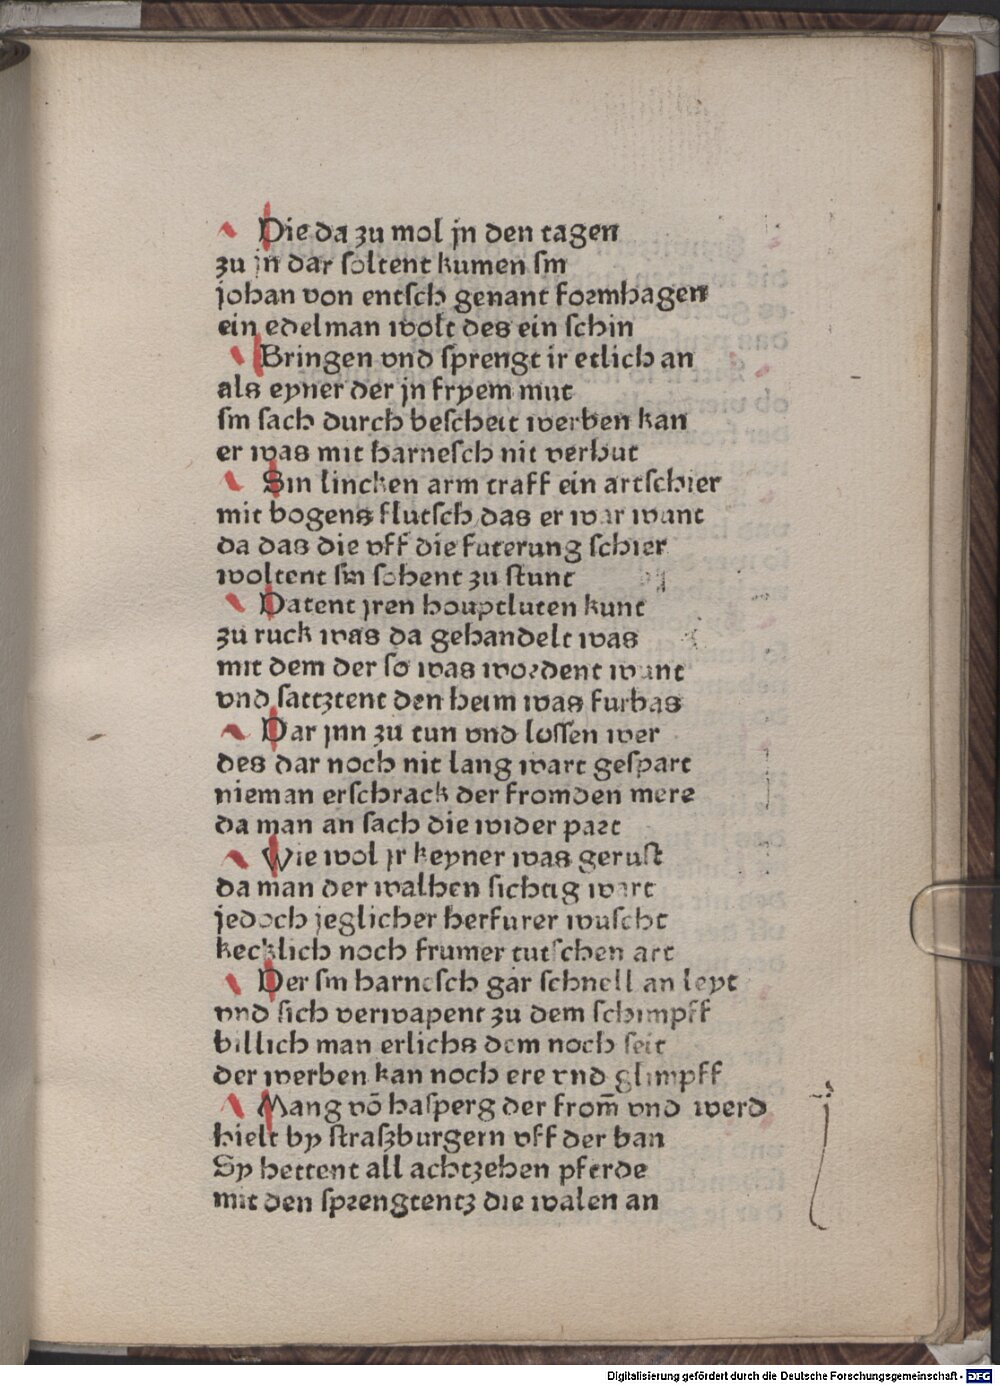 Die da zu mol jn den tagen
zu jn dar soltent kumen sin
johan von entsch genant formhagen
ein edelman wolt des ein schin
Bringen vnd sprengt ir etlich an
als eyner der jn fryem mut
sin sach durch bescheit werben kan
er was mit harnesch nit verhut
Sin lincken arm traff ein artschier
mit bogens flutsch das er war wunt
da das die vff die futerung schier
woltent sin sehent zu stunt
Datent jren houptluten kunt
zu ruck was da gehandelt was
mit dem der so was wordent wunt
vnd sattztent den heim was furbas
Dar jnn zu tun vnd lossen wer
des dar noch nit lang wart gespart
nieman erschrack der fromden mere
da man an sach die wider part
Wie wol jr keyner was gerust
da man der walhen sichtig wart
jedoch jeglicher herfurer wuscht
kecklich noch frumer tutschen art
Der sin harnesch gar schnell an leyt
vnd sich verwapent zu dem schimpff
billich man erlichs dem noch seit
der werben kan noch ere vnd glimpff
Mang võ hasperg der from̃ vnd werd
hielt by straszburgern vff der ban
Sy hettent all achtzehen pferde
mit den sprengtentz die walen an
Digitalisierung gefördert durch die Deutsche Forschungsgemeinschaft - DFG